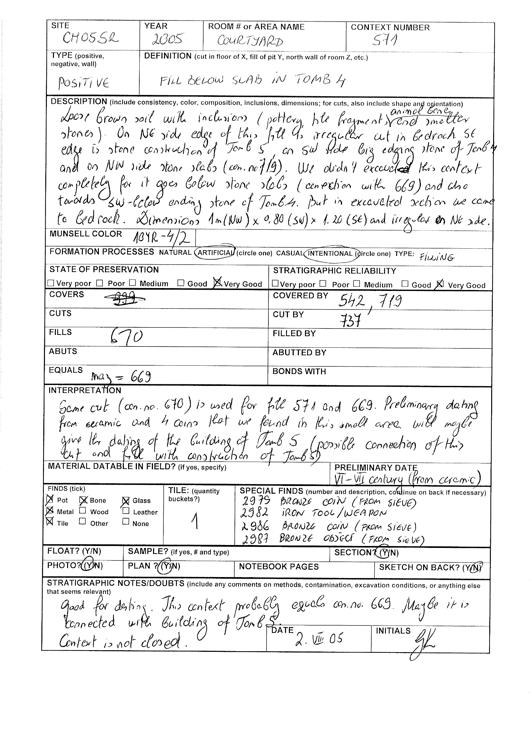 SITE YEAR ROOM # or AREA NAME CONTEXT NUMBER
CHO5SR 2005 COURTYARD 571
TYPE (positive, negative, wall) DEFINITION (cut in floor of X, fill of pit Y, north wall of room Z, etc.)
POSITIVE FILL BELOW SLAB IN TOMB 4
DESCRIPTION (include consistency, color, composition, inclusions, dimensions; for cuts, also include shape and orientation)
Loose brown soil with inclusions (pottery, tile fragments, animal bones and smaller
stones). On NE side edge of this fill is irregular cut in bedrock SE
edge is stone construction of Tomb 5 on SW side big edging stone of Tomb 4
and on NW side stone slabs (con.no 719). We didn't excavated this context
completely for it goes below stone slabs (conection with 669) and also
towards SW-below ending stone of Tomb 4. But in excavated section we came
to bedrock. Dimensions 1m(NW) x 0.80(SW) x 1.20(SE) and irregular on NE side.
MUNSELL COLOR 10YR-4/2
FORMATION PROCESSES NATURAL ARTIFICIAL (circle one) CASUAL INTENTIONAL (circle one) TYPE: FILLING
STATE OF PRESERVATION STRATIGRAPHIC RELIABILITY
Very poor Poor Medium Good Very Good Very poor Poor Medium Good Very Good
COVERS COVERED BY 542, 719
CUTS CUT BY 737
FILLS 670 FILLED BY
ABUTS ABUTTED BY
EQUALS may = 669 BONDS WITH
INTERPRETATION
Same cut (con.no. 670) is used for fill 571 and 669. Preliminary dating
from ceramic and 4 coins that we found in this small area will maybe
give the dating of the building of Tomb 5 (possible connection of this
cut and fill with construction of Tomb 5)
MATERIAL DATABLE IN FIELD? (if yes, specify) PRELIMINARY DATE
VI-VII century (from ceramic)
FINDS (tick) TILE: (quantity buckets?) SPECIAL FINDS (number and description, continue on back if necessary)
Pot Bone Glass 2979 BRONZE COIN (FROM SIEVE)
Metal Wood Leather 1 2982 IRON TOOL/WEAPON
Tile Other None 2986 BRONZE COIN (FROM SIEVE)
2987 BRONZE OBJECT (FROM SIEVE)
FLOAT? (Y/N) SAMPLE? (if yes, # and type) SECTION? (Y/N)
PHOTO? (Y/N) PLAN ? (Y/N) NOTEBOOK PAGES SKETCH ON BACK? (Y/N)
STRATIGRAPHIC NOTES/DOUBTS (include any comments on methods, contamination, excavation conditions, or anything else
that seems relevant)
Good for dating. This context probably equals con.no. 669. Maybe it is
connected with building of Tomb 5.
Context is not closed.
DATE 2. VII. 05 INITIALS